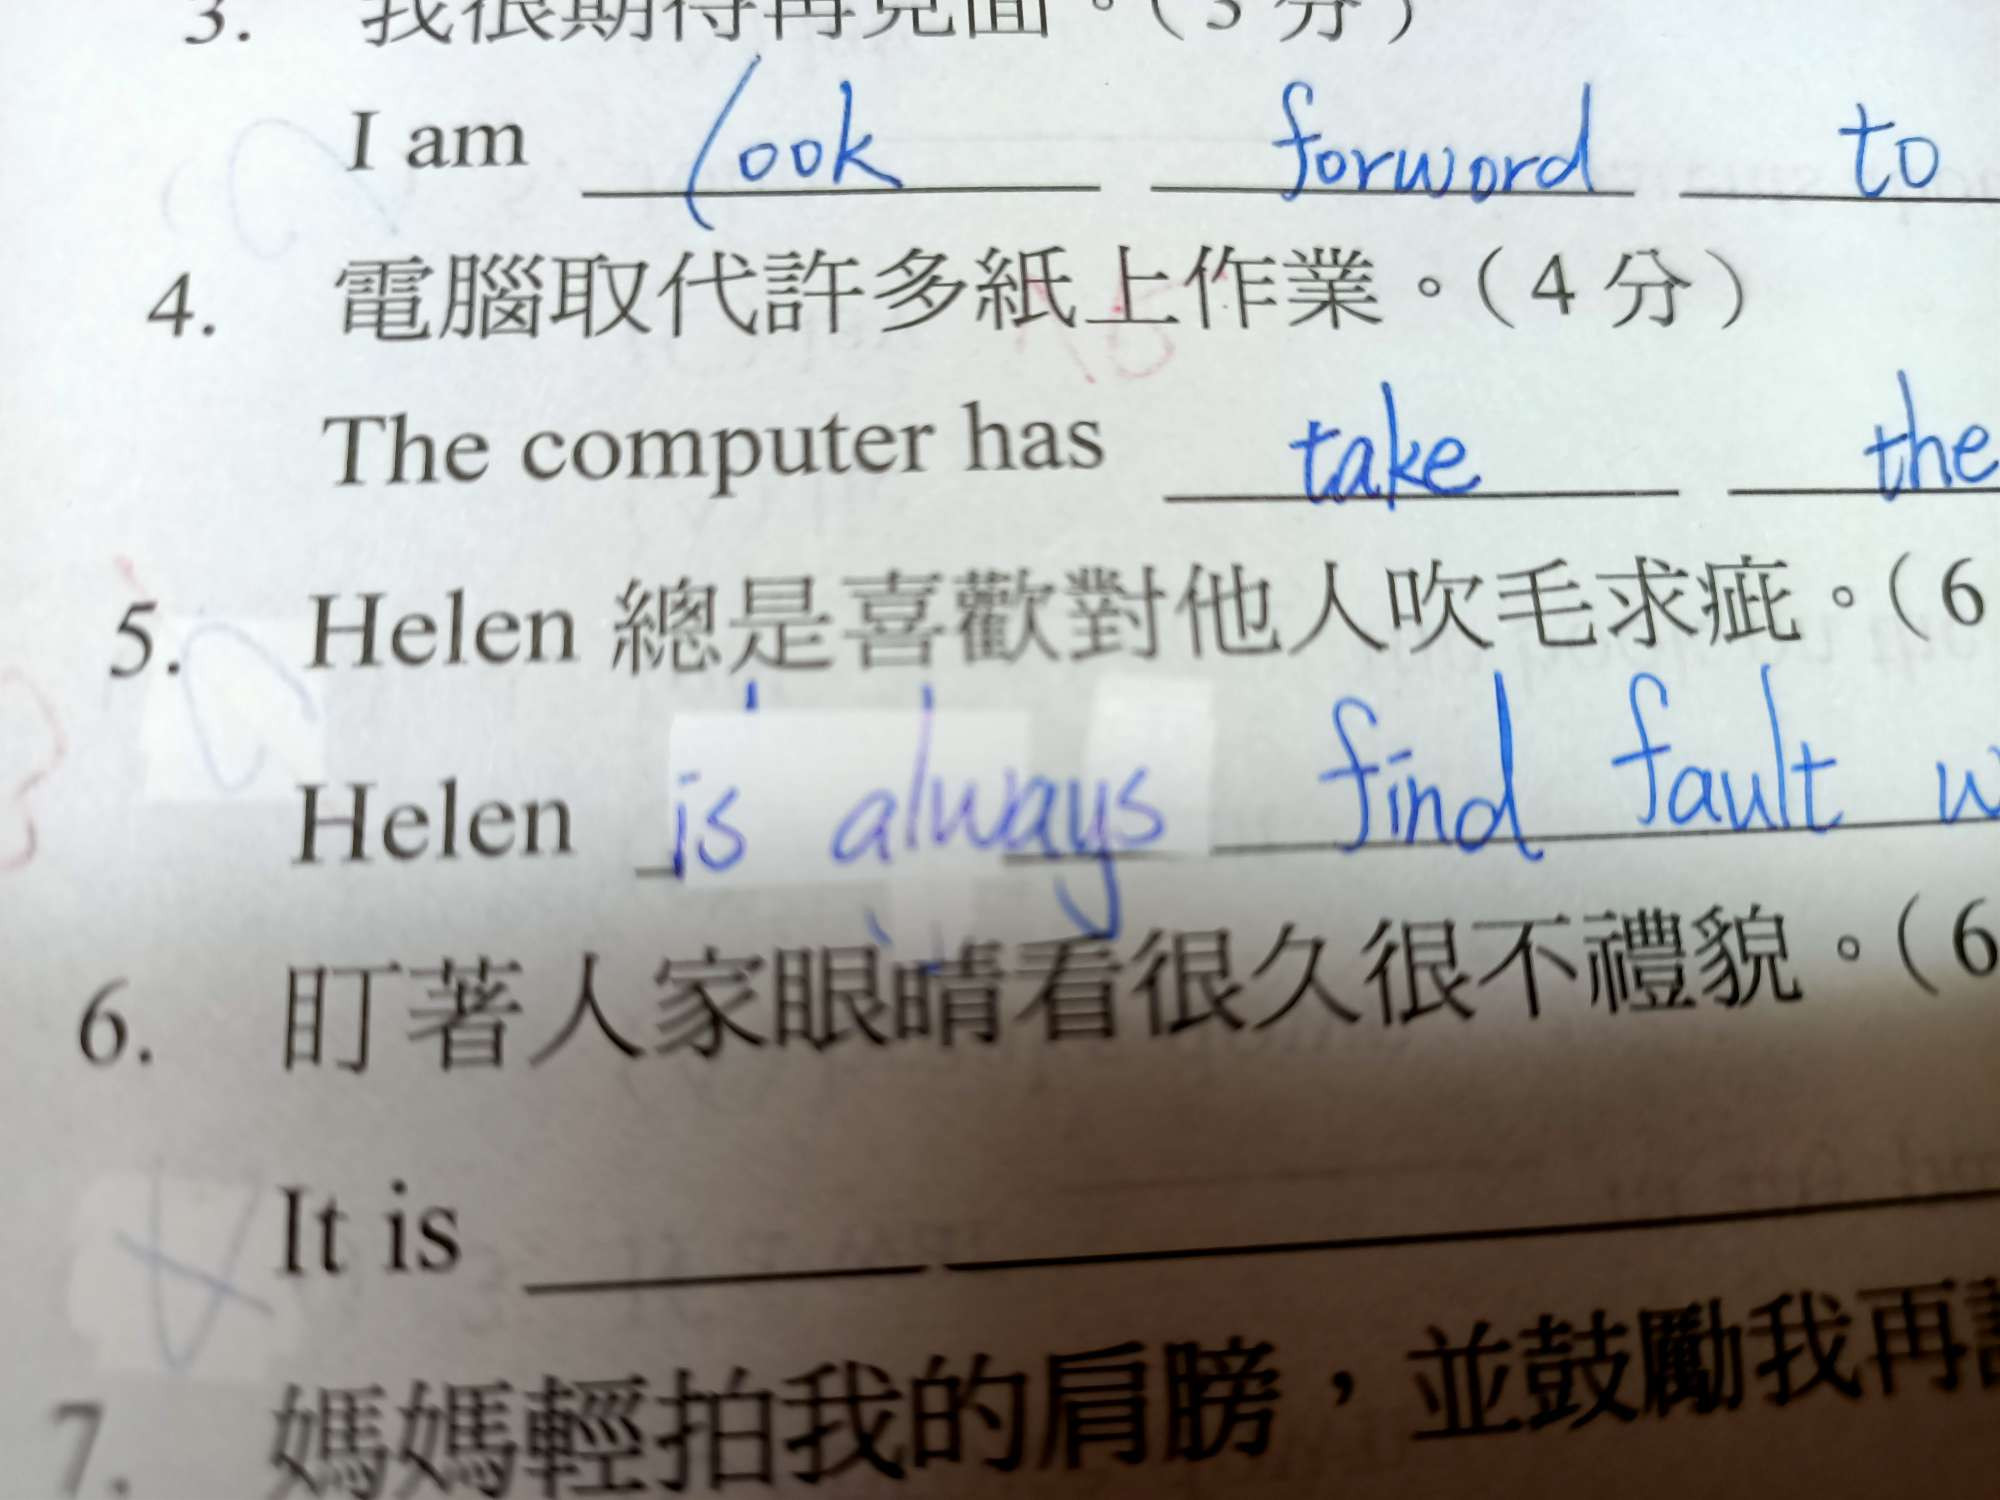 3. 我很期待再見面。(3分)
I am look forword to
4. 電腦取代許多紙上作業。(4分)
The computer has take the
5. Helen 總是喜歡對他人吹毛求疵。(6
Helen is always find fault w
6. 盯著人家眼睛看很久很不禮貌。(6
It is
7. 媽媽輕拍我的肩膀,並鼓勵我再